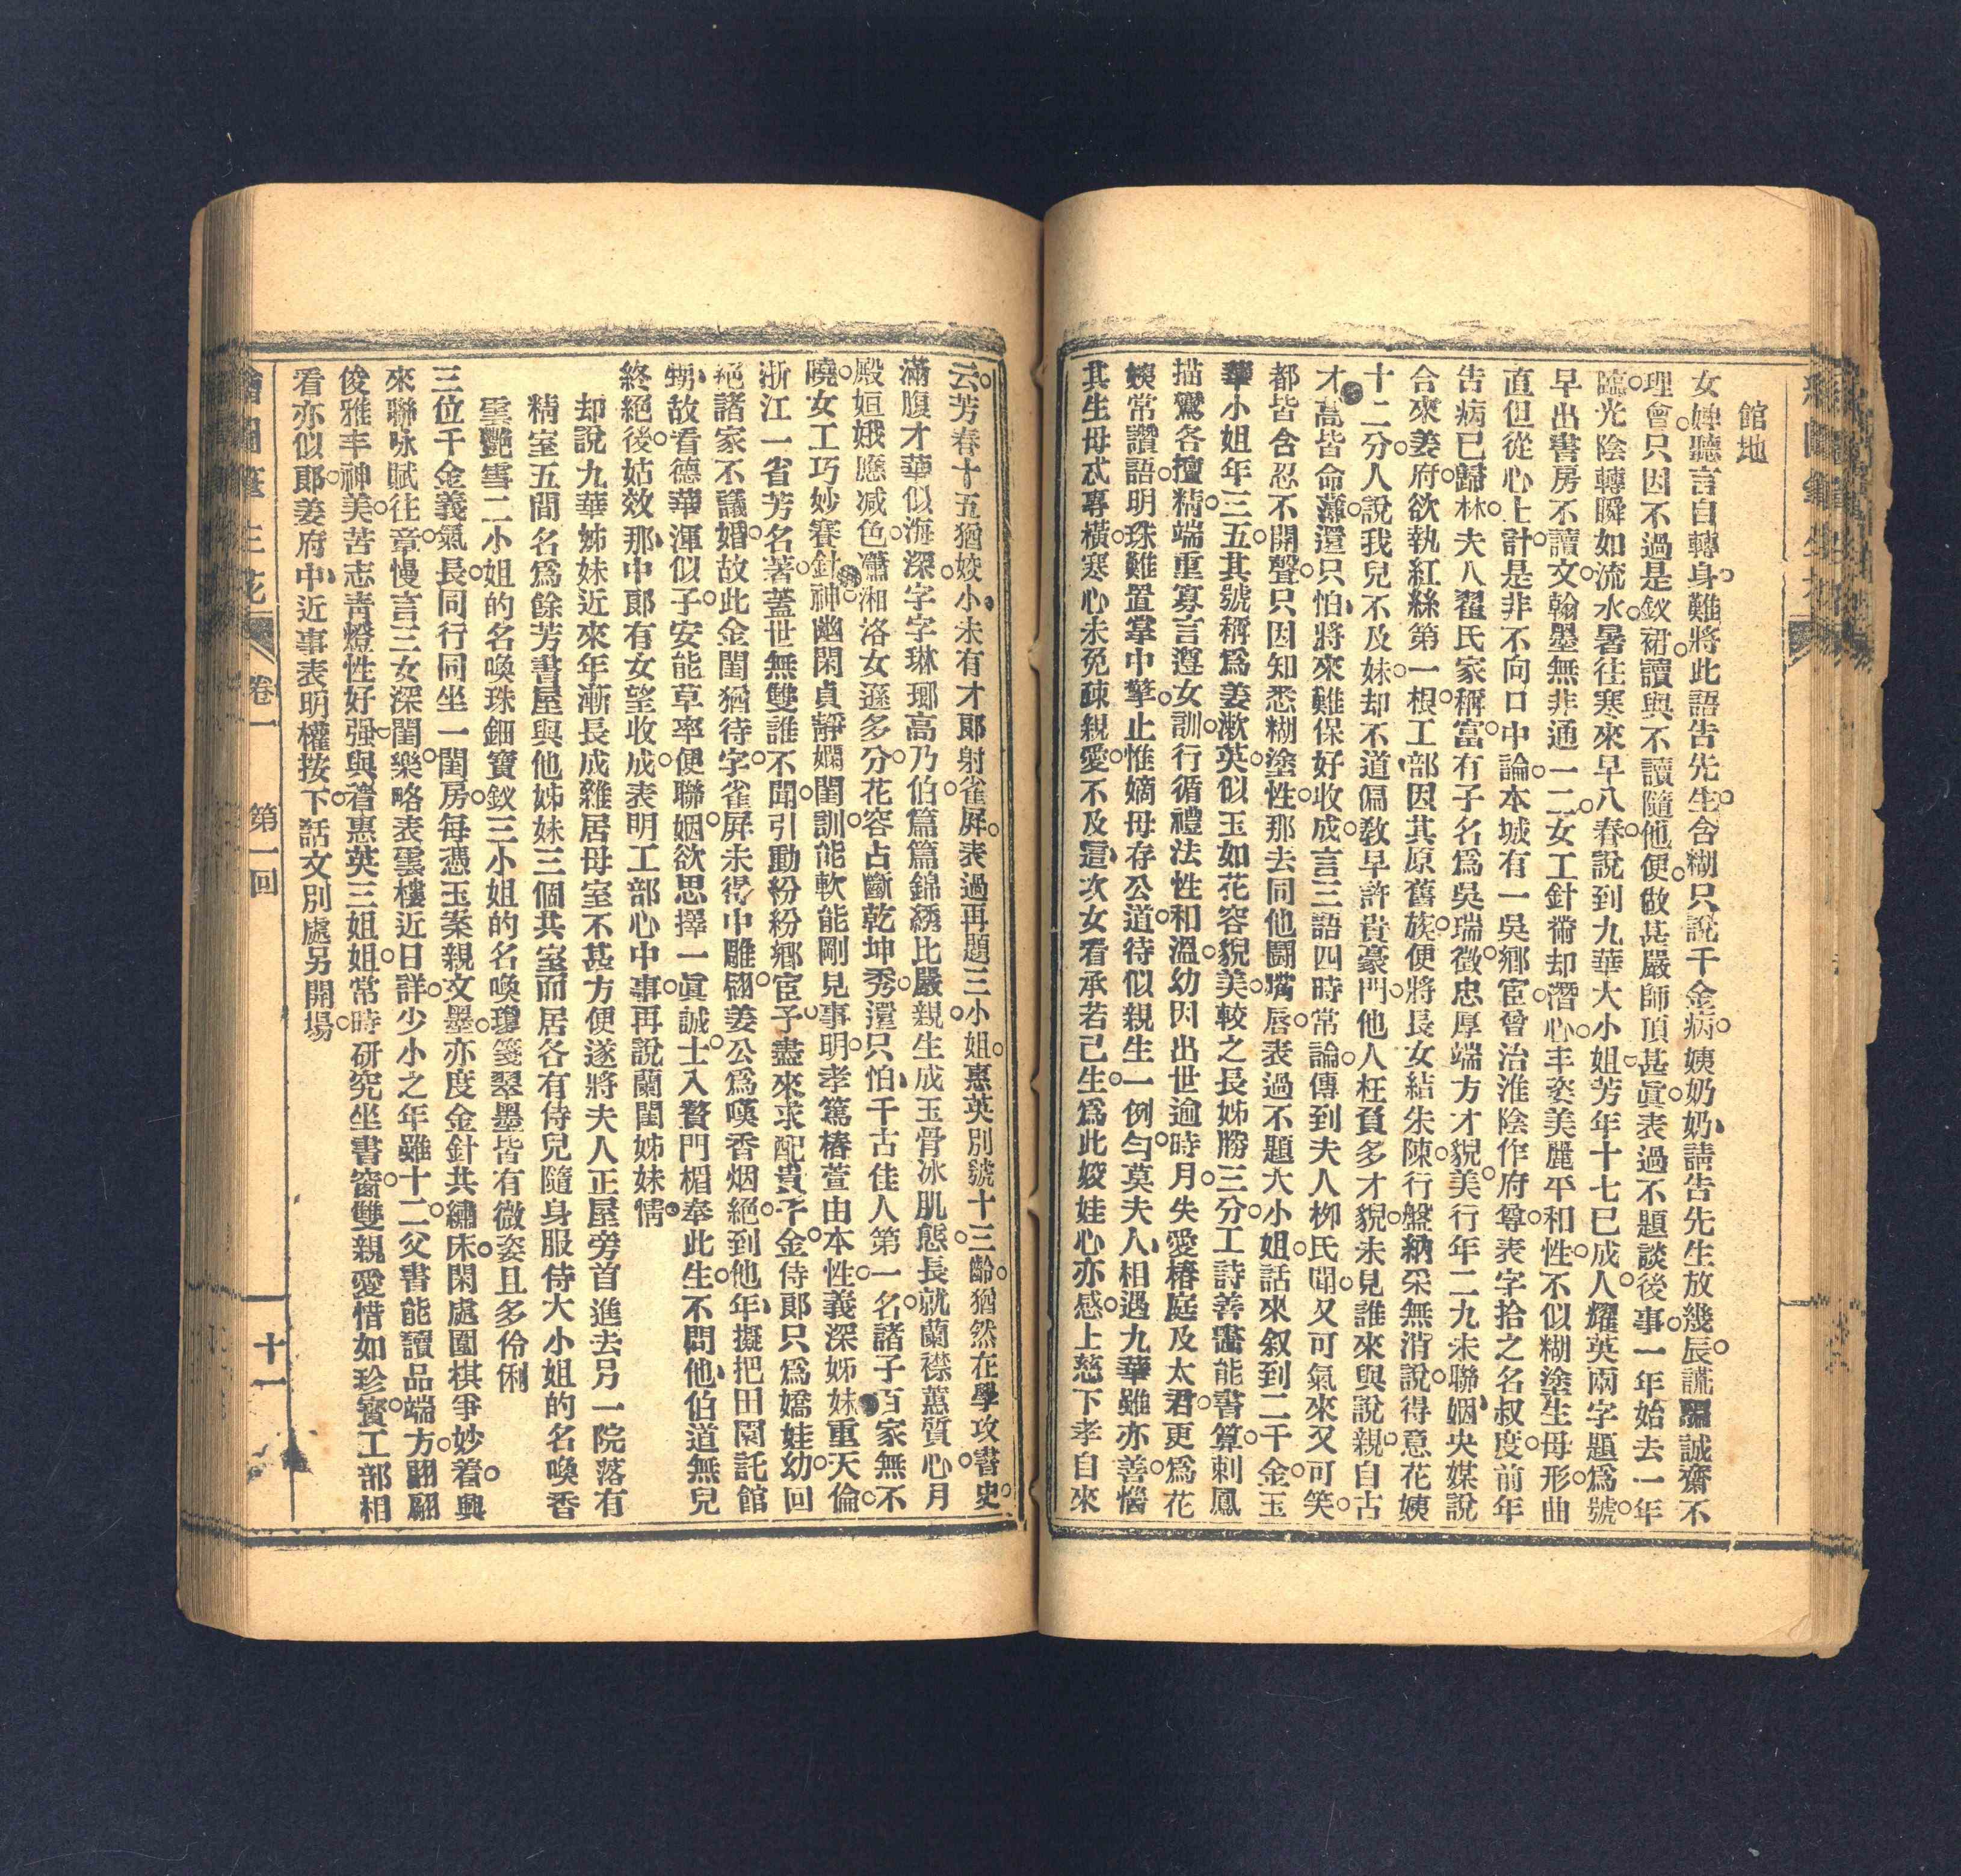 館地
女婢聽言自轉身。難將此語告先生。含糊只說千金病。姨奶奶請告先生放幾辰。謊騙誠齋不
理會。只因不過是釵裙。讀與不讀隨他便。做甚嚴師頂甚眞。表過不題談後事。一年始去一年
臨。光陰轉瞬如流水。暑往寒來早八春。說到九華大小姐。芳年十七已成人。耀英兩字題爲號。
早出書房不讀文。翰墨無非通一二。女工針黹却潛心。丰姿美麗平和性。不似糊塗生母形。曲
直但從心上計。是非不向口中論。本城有一吳鄉宦。曾治淮陰作府尊。表字拾之名叔度。前年
告病已歸林。夫人翟氏家稱富。有子名爲吳瑞徵。忠厚端方才貌美。行年二九未聯姻。央媒說
合來姜府。欲執紅絲第一根。工部因其原舊族。便將長女結朱陳。行盤納采無消說。得意花姨
十二分。人說我兒不及妹。却不道偏敎早許貴豪門。他人枉負多才貌。未見誰來與說親。自古
才高皆命薄。還只怕將來難保好收成。言三語四時常論。傳到夫人柳氏聞。又可氣來又可笑。
都皆含忍不開聲。只因知悉糊塗性。那去同他鬬嘴唇。表過不題大小姐。話來叙到二千金。玉
華小姐年三五。其號稱爲姜漱英。似玉如花容貌美。較之長姊勝三分。工詩善畵能書算。刺鳳
描鸞各擅精。端重寡言遵女訓。行循禮法性和溫。幼因出世逾時月。失愛椿庭及太君。更爲花
姨常讚語。明珠難置掌中擎。止惟嫡母存公道。待似親生一例勻。莫夫人相遇九華雖亦善。惱
其生母忒專橫。寒心未免疎親愛。不及這次女看承若己生。爲此姣娃心亦感。上慈下孝自來
云。芳春十五猶姣小。未有才郎射雀屏。表過再題三小姐。惠英別號十三齡。猶然在學攻書史。
滿腹才華似海深。字字琳瑯高乃伯。篇篇錦綉比嚴親。生成玉骨冰肌態。長就蘭襟蕙質心。月
殿姮娥應减色。瀟湘洛女遜多分。花容占斷乾坤秀。還只怕千古佳人第一名。諸子百家無不
曉。女工巧妙賽針神。幽閑貞靜嫻閨訓。能軟能剛見事明。孝篤椿萱由本性。義深姊妹重天倫。
浙江一省芳名著。蓋世無雙誰不聞。引動紛紛鄉宦子。盡來求配貴千金。侍郎只爲嬌娃幼。回
絕諸家不議婚。故此金閨猶待字。雀屏未得中雕翎。姜公爲嘆香烟絕。到他年擬把田園託館
甥。故看德華渾似子。安能草率便聯姻。欲思擇一眞誠士。入贅門楣奉此生。不問他伯道無兒
終絕後。姑效那中郎有女望收成。表明工部心中事。再說蘭閨姊妹情。
却說九華姊妹近來年漸長成雜居母室不甚方便遂將夫人正屋旁首進去另一院落有
精室五間名爲餘芳書屋與他姊妹三個共室而居各有侍兒隨身服侍大小姐的名喚香
雲艷雪二小姐的名喚珠鈿寶釵三小姐的名喚瓊箋翠墨皆有微姿且多伶俐
三位千金義氣長。同行同坐一閨房。每憑玉案親文墨。亦度金針共繡床。閑處圍棋爭妙着。興
來聯咏賦往章。慢言三女深閨樂。略表雲樓近日詳。少小之年雖十二。父書能讀品端方。翩翩
俊雅丰神美。苦志靑燈性好强。與着惠英三姐姐。常時研究坐書窗。雙親愛惜如珍寶。工部相
看亦似郎。姜府中近事表明權按下。話文別處另開場。
卷一　第一回
十一